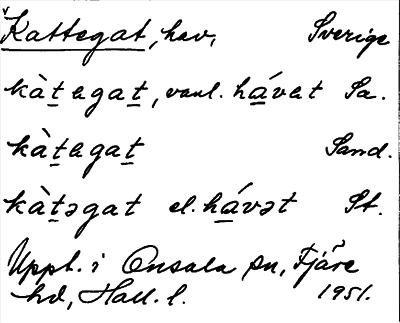 Kattegat, hav, Sverige
kàt̲agat̲, vanl. há̲vat Sa.
kàt̲agat̲ Sand.
kàt̲əgat el. há̲vət St.
Uppt. i Onsala sn, Fjäre
hd, Hall. l. 1951.